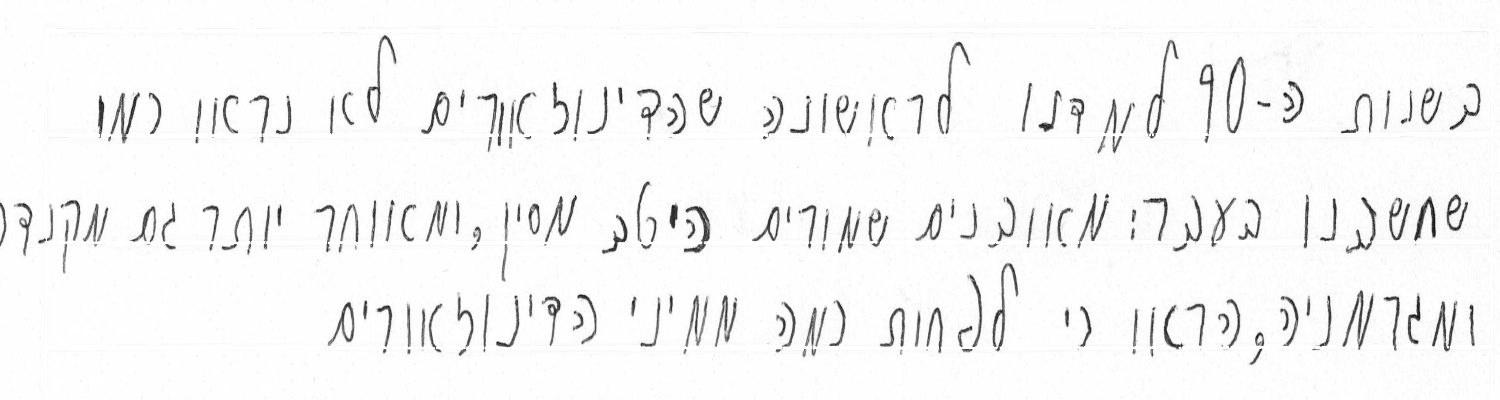 בשנות ה-90 למדנו לראשונה שהדינוזאורים לא נראו כמו
שחשבנו בעבר: מאובנים שמורים היטב מסין, ומאוחר יותר גם מקנדה
ומגרמניה, הראו כי לפחות כמה ממיני הדינוזאורים